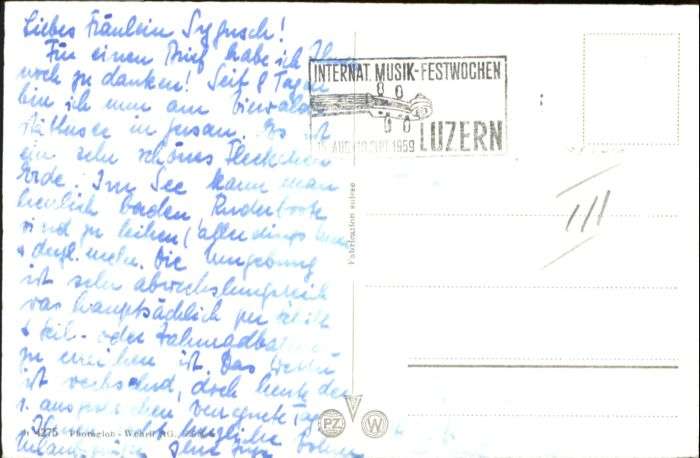 Liebes Fräulein Sygusch!
Für einen Brief habe ich Ihnen
noch zu danken! Seit 8 Tagen
bin ich nun am Vierwald-
stättersee in
ein sehr schönes Fleckchen
Erde. Im See kann man
herrlich baden Ruderboote
sind zu leihen (allerdings
& dergl. mehr. Die Umgebung
ist sehr abwechslungsreich
was hauptsächlich per Schiff
& Seil- oder Zahnradbahn
zu erreichen ist. Das Wetter
ist wechselnd, doch heute der
1. ausgesprochen verregnete Tag.
Ihnen recht herzliche
Urlaubsgrüße
INTERNAT. MUSIK-FESTWOCHEN
LUZERN
1959
Fabrication suisse
4275 Photoglob - Wehrli AG.,
PZ W